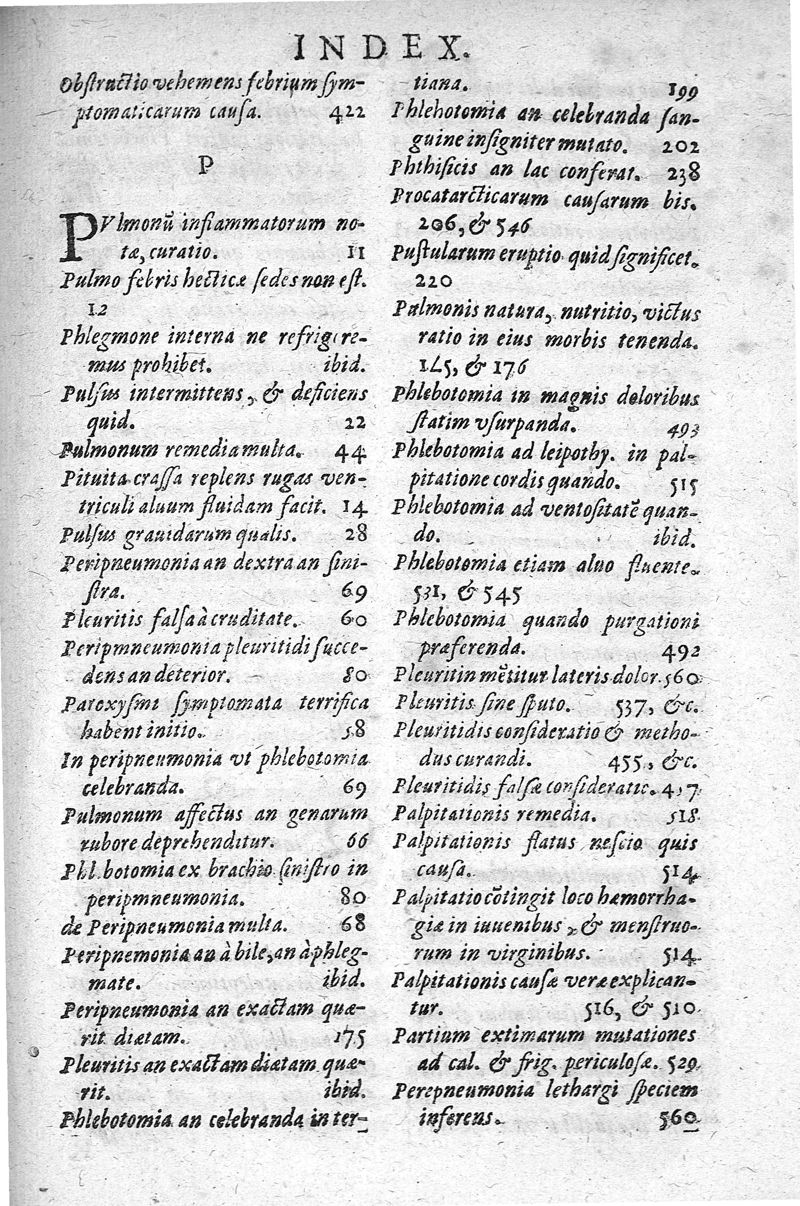 INDEX.
Obstructio vehemens febrium sym-
ptomaticarum causa. 422
P
PVlmonũ inflammatorum no-
tæ, curatio. 11
Pulmo febris hecticæ sedes non est.
12
Phlegmone interna ne refrigere-
mus prohibet. ibid.
Pulsus intermittens, & deficiens
quid. 22
Pulmonum remedia multa. 44
Pituita crassa replens rugas ven-
triculi aluum fluidam facit. 14
Pulsus grauidarum qualis. 28
Peripneumonia an dextra an sini-
stra. 69
Pleuritis falsa à cruditate. 60
Peripmneumonia pleuritidi succe-
dens an deterior. 80
Paroxysmi symptomata terrifica
habent initio. 58
In peripneumonia vt phlebotomia
celebranda. 69
Pulmonum affectus an genarum
rubore deprehenditur. 66
Phl botomia ex brachio sinistro in
peripmneumonia. 80
de Peripneumonia multa. 68
Peripnemonia an à bile, an à phleg-
mate. ibid.
Peripneumonia an exactam quæ-
rit diætam. 175
Pleuritis an exactam diætam quæ-
rit. ibid.
Phlebotomia an celebranda in ter-
tiana. 199
Phlebotomia an celebranda san-
guine insigniter mutato. 202
Phthisicis an lac conferat. 238
Procatarcticarum causarum bis.
206, & 546
Pustularum eruptio quid significet.
220
Pulmonis natura, nutritio, victus
ratio in eius morbis tenenda.
145, & 176
Phlebotomia in magnis doloribus
statim vsurpanda. 493
Phlebotomia ad leipothy. in pal-
pitatione cordis quando. 515
Phlebotomia ad ventositatẽ quan-
do. ibid.
Phlebotomia etiam aluo fluente.
531, & 545
Phlebotomia quando purgationi
præferenda. 492
Pleuritin mẽtitur lateris dolor. 560
Pleuritis sine sputo. 537, &c.
Pleuritidis consideratio & metho-
dus curandi. 455, &c.
Pleuritidis falsæ consideratio. 457
Palpitationis remedia. 518
Palpitationis flatus nescio quis
causa. 514
Palpitatio cõtingit loco hæmorrha-
giæ in iuuenibus, & menstruo-
rum in virginibus. 514
Palpitationis causæ veræ explican-
tur. 516, & 510
Partium extimarum mutationes
ad cal. & frig. periculosæ. 529
Perepneumonia lethargi speciem
inferens. 560